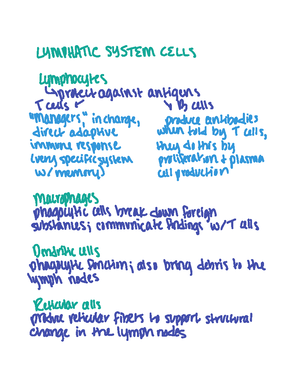 LYMPHATIC SYSTEM CELLS
Lymphocytes
↳ protect against antigens
T cells
"managers," in charge,
direct adaptive
immune response
(very specific system
w/ memory)
B cells
produce antibodies
when told by T cells,
they do this by
proliferation & plasma
cell production
Macrophages
phagocytic cells break down foreign
substances; communicate findings w/ T cells
Dendritic cells
phagocytic function; also bring debris to the
lymph nodes
Reticular cells
produce reticular fibers to support structural
change in the lymph nodes